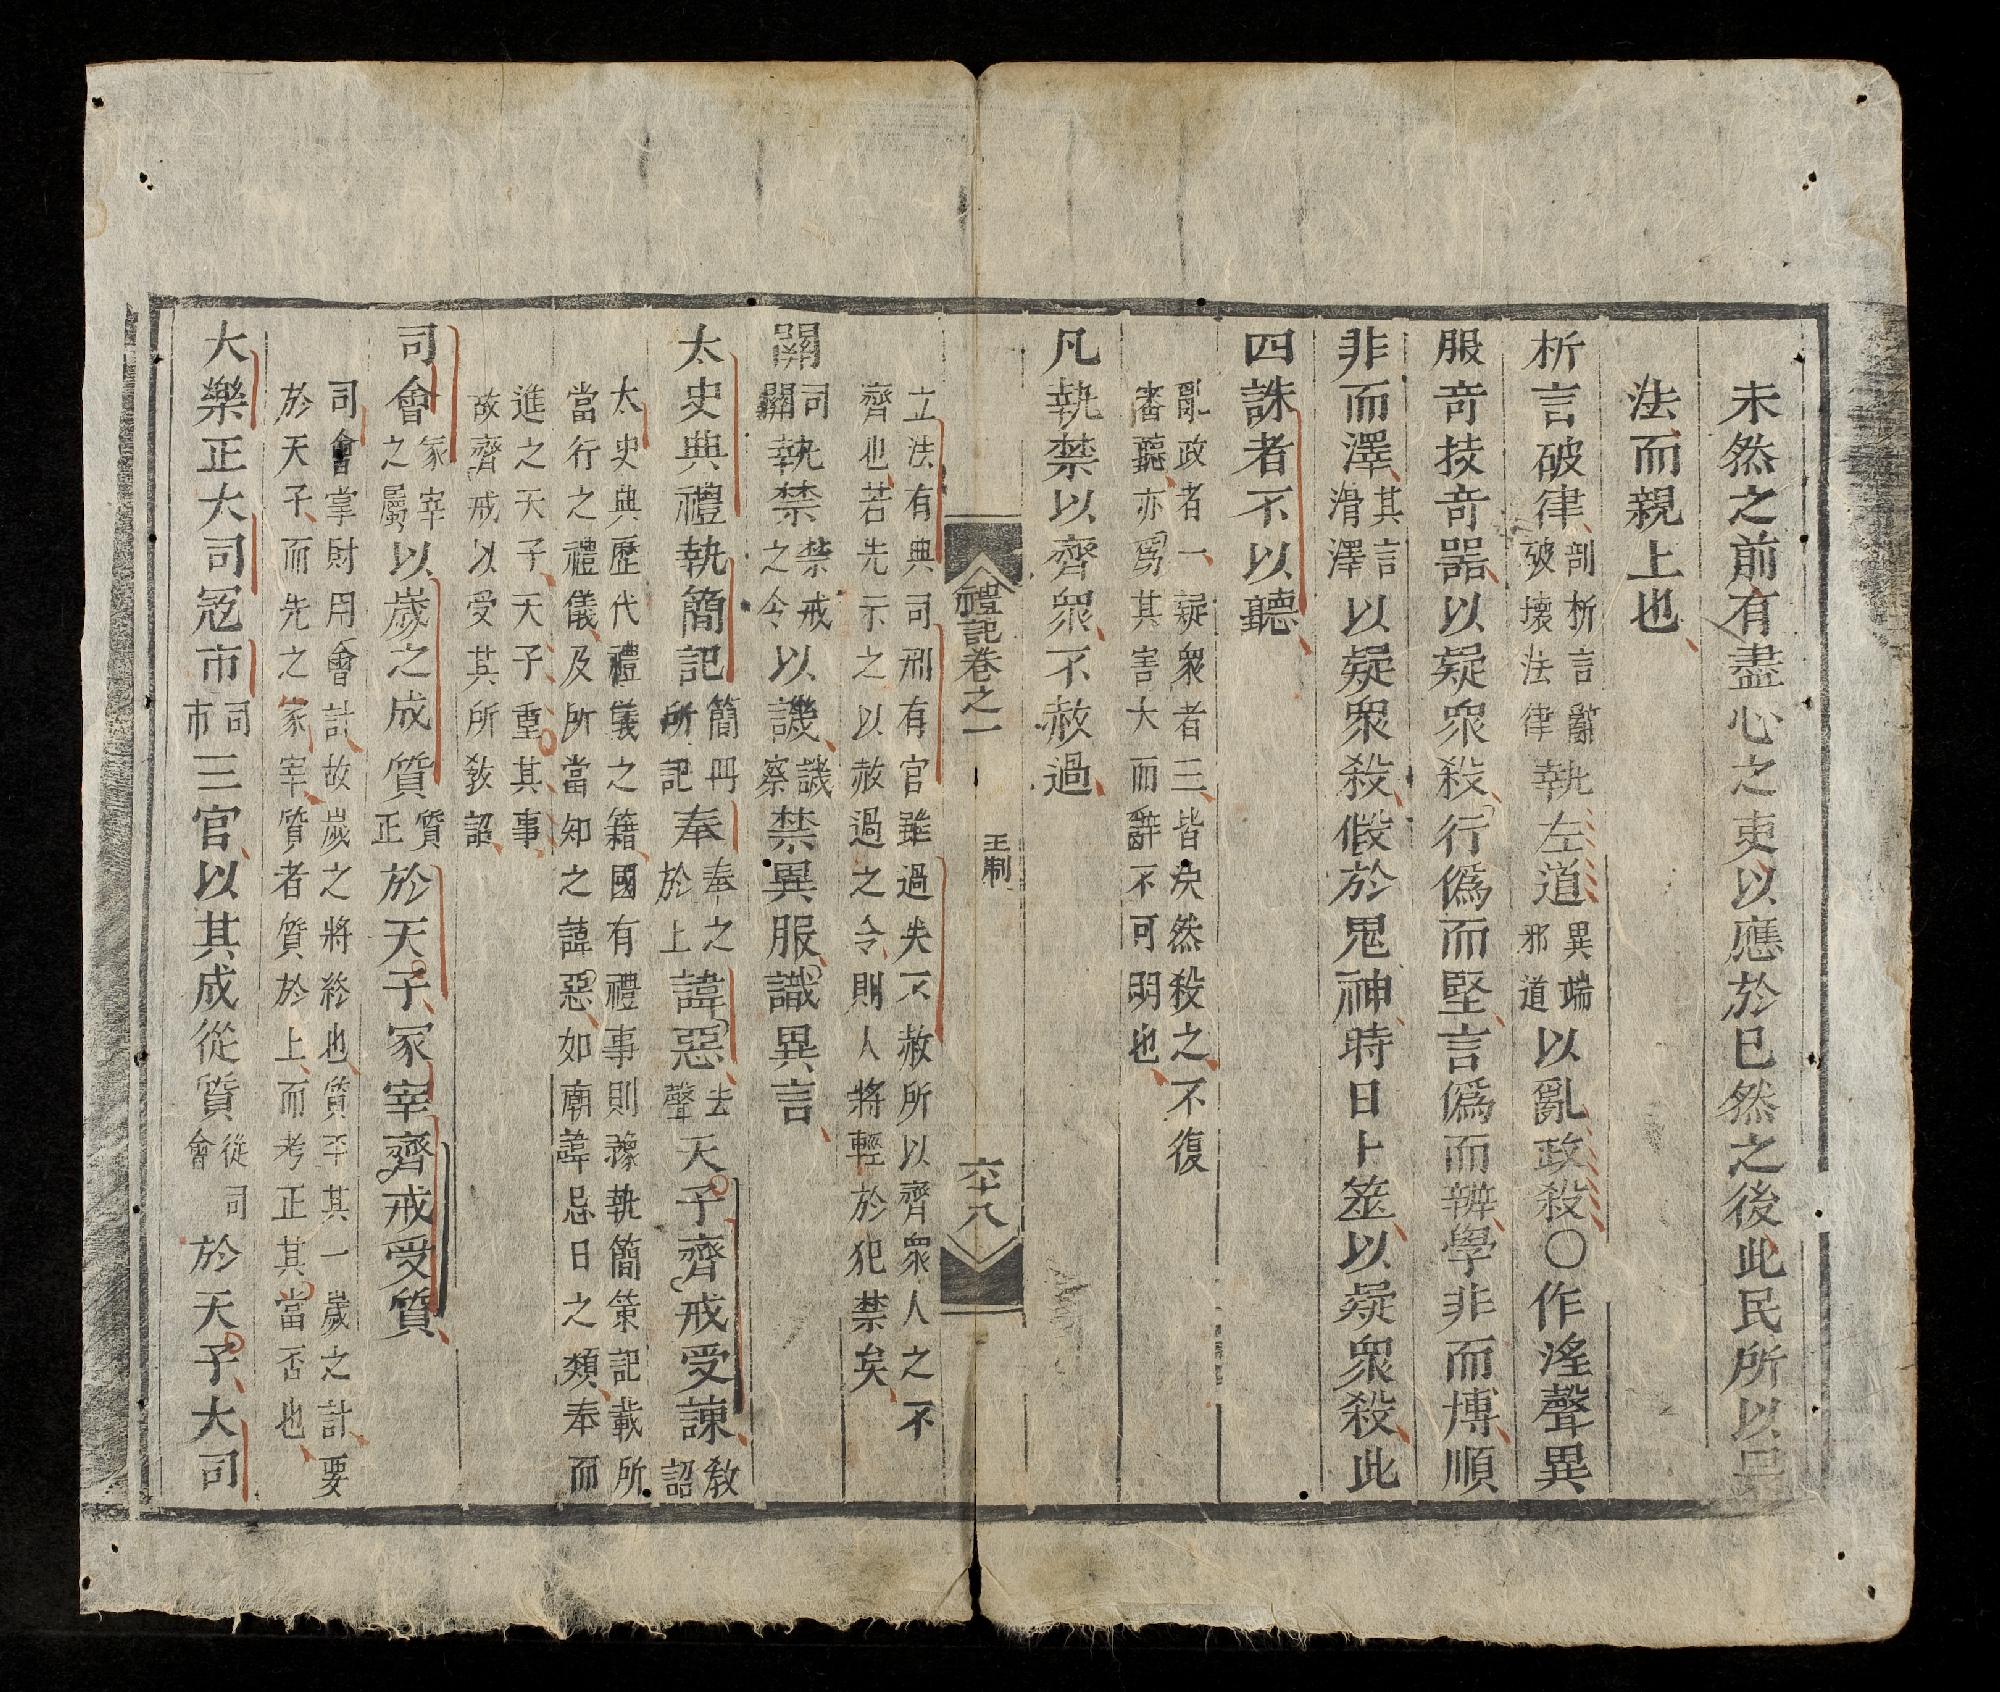 未然之前有盡心之吏以應於已然之後此民所以
法而親上也
析言破律剖析言辭破壞法律執左道異端邪道以亂政殺〇作淫聲異
服奇技奇器以疑衆殺行僞而堅言僞而辨學非而博順
非而澤其言滑澤以疑衆殺假於鬼神時日卜筮以疑衆殺此
四誅者不以聽
亂政者一疑衆者三皆決然殺之不復
審聽亦爲其害大而辭不可明也
凡執禁以齊衆不赦過
禮記卷之一
王制
六十八
立法有典司刑有官雖過失不赦所以齊衆人之不
齊也若先示之以赦過之令則人將輕於犯禁矣
關司關執禁禁戒之令以譏譏察禁異服識異言
太史典禮執簡記簡冊所記奉奉之於上諱惡去聲天子齊戒受諫敎詔
太史典歷代禮儀之籍國有禮事則豫執簡策記載所
當行之禮儀及所當知之諱惡如廟諱忌日之類奉而
進之天子天子重其事
故齊戒以受其所敎詔
司會冢宰之屬以歲之成質質正於天子冢宰齊戒受質
司會掌財用會計故歲之將終也質平其一歲之計要
於天子而先之冢宰質者質於上而考正其當否也
大樂正大司冦市司市三官以其成從質從司會於天子大司